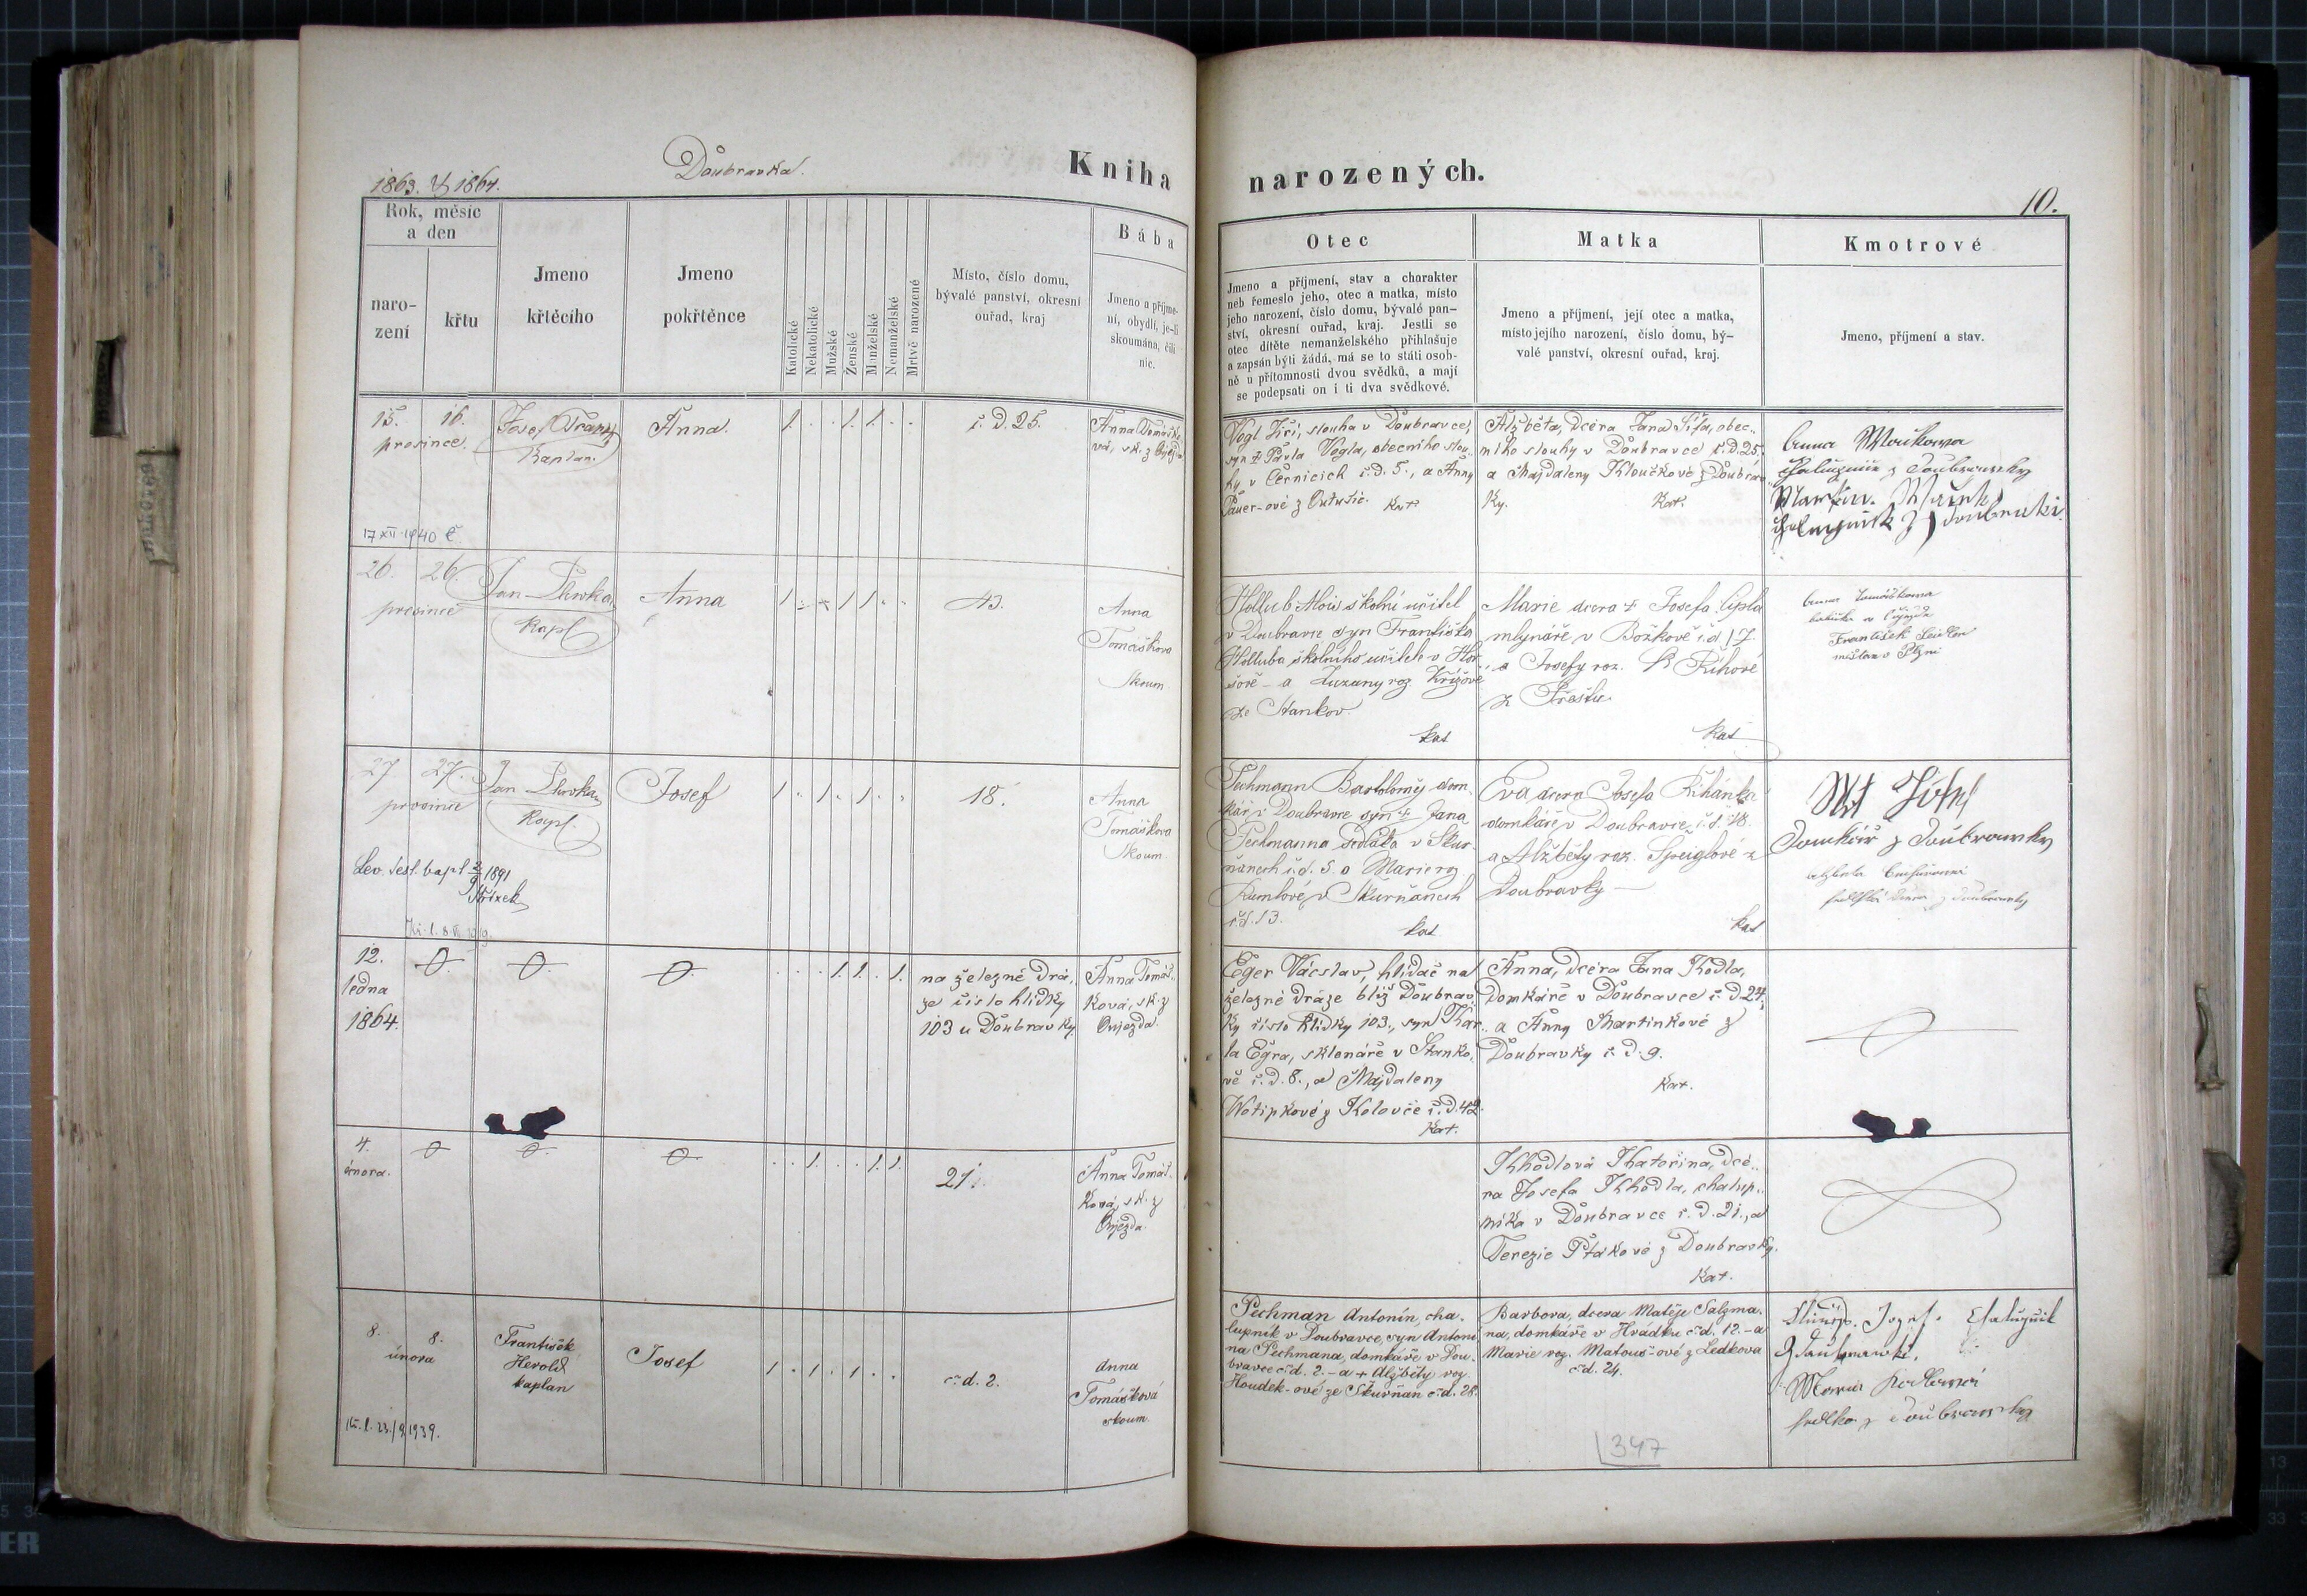 1863. & 1864.
Doubravka.
Kniha
narozených.
10.
Rok, měsíc
a den
naro-
zení
křtu
Jmeno
křtěcího
Jmeno
pokřtěnce
Katolické
Nekatolické
Mužské
Ženské
Manželské
Nemanželské
Mrtvě narozené
Místo, číslo domu,
bývalé panství, okresní
ouřad, kraj
Bába
Jmeno a příjme-
ní, obydlí, je-li
skoumána, čili
nic.
Otec
Jmeno a příjmení, stav a charakter
neb řemeslo jeho, otec a matka, místo
jeho narození, číslo domu, bývalé pan-
ství, okresní ouřad, kraj. Jestli se
otec dítěte nemanželského přihlašuje
a zapsán býti žádá, má se to státi osob-
ně u přítomnosti dvou svědků, a mají
se podepsati on i ti dva svědkové.
Matka
Jmeno a příjmení, její otec a matka,
místo jejího narození, číslo domu, bý-
valé panství, okresní ouřad, kraj.
Kmotrové
Jmeno, příjmení a stav.
15. 16.
prosince.
Josef Franz
Kaplan.
Anna.
1 . . 1. 1. . .
č. d. 25.
Anna Tomáško
vá, sk. z
17 XII 1940 Č
Vogl Jiří, slouha v Doubravce,
syn † Pavla Vogla, obecního slou
hy v Černicích č. d. 5., a Anny
Pauer-ové z Kat.
Alžběta, dcera Jana Šífa, obec..
ního slouhy v Doubravce č. d. 25.
a Majdaleny Kloučkové z Doubrav
ky. Kat.
Anna
z
Martin.
z
26. 26.
prosince
Jan
Kapl
Anna
1 . . 1 1 . .
43.
Anna
Tomaškova
skoum
Hollub Alois školní učitel
v Doubravce syn Františka
Holluba školního učitele v
a Zuzany roz. Křížové
ze Stankov.
kat
Marie dcera † Josefa
mlynáře v Božkově č. d 17.
a Josefy roz. Říhové
z
kat
Anna Tomáškowa
František
v Plzni
27 27.
prosince
Jan
Kapl.
Josef
1 . 1. . 1. . .
18.
Anna
Tomaškova
skoum
Lev. test. bapt. 1891
Pechmann Bartoloměj dom.
kář v Doubravce syn † Jana
Pechmanna sedláka v Skur
ňanech č. d. 5. a Marie roz
v Skurňanech
č. d. 13.
kat
Eva dcera Josefa Říhánka
domkáře v Doubravce č. d. 18.
a Alžběty roz. Speiglové z
Doubravky
kat
Josef
Domkář z
12.
ledna
1864.
. . . 1. 1. . 1.
na železné drá.
ze číslo hlídky
103 u Doubravky.
Anna Tomáš..
ková, sk. z
Oujezda.
Eger Václav, hlídač na
železné dráze blíž Doubrav.
ky číslo hlídky 103., syn Kar..
la Egra, sklenáře v Stanko.
vě č. d. 8., a Majdaleny
Wotipkové z Koloveče č. d. 42.
Kat.
Anna, dcera Jana Kodla,
Domkáře v Doubravce č. d. 24.
a Anny Martinkové z
Doubravky č. d. 9.
Kat.
4.
února.
. . 1. . . 1. 1.
21.
Anna Tomáš.
ková, sk. z
Oujezda.
Khodlová Khateřina, dce..
ra Josefa Khodla, chalup..
níka v Doubravce č. d. 21., a
Terezie Ptákové z Doubravky.
Kat.
8. 8.
února
František
Herold
kaplan
Josef
1 . 1 . 1 . .
č. d. 2.
Anna
Tomášková
skoum.
1939.
Pechman Antonín, cha.
lupník v Doubravce, syn Antoni
na Pechmana, domkáře v Dou-
bravce č. d. 2. - a † Alžběty roz.
Houdek-ové ze Skurňan č. d. 28.
Barbora, dcera Matěje Salzma.
na, domkáře v Hrádku č. d. 12. - a
Marie roz. Matouš-ové z Ledkova
č. d. 24.
Josef.
347